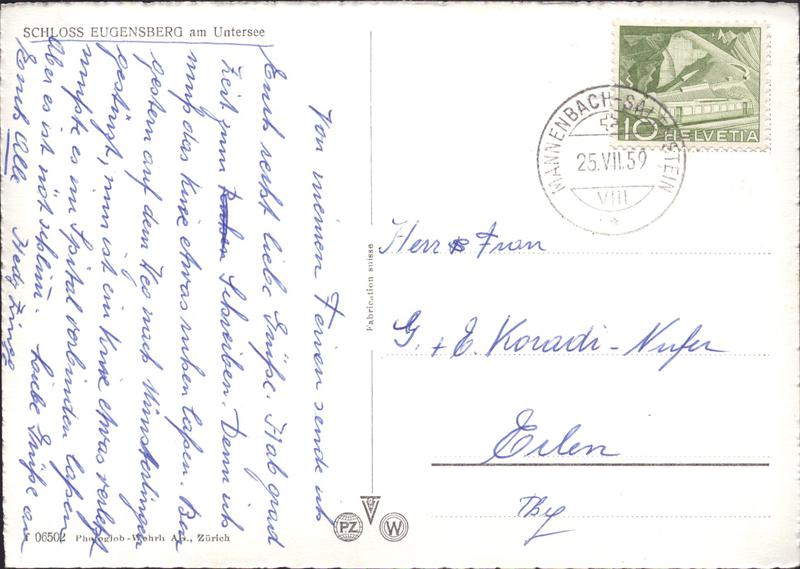 SCHLOSS EUGENSBERG am Untersee
Von meinen Ferien sende ich
Euch recht liebe Grüße. Hab grad
Zeit zum Schreiben. Denn ich
muß das Knie etwas ruhen laßen. Bin
gestern auf dem Weg nach Münsterlingen
gestürzt, nun ist ein Knie etwas verletzt
mußte es im Spital verbinden laßen
Aber es ist nöt schlim. Liebe Grüße an
Euch Alle Hedy
Fabrication suisse
PZ W
06502 Photoglob-Wehrli A.G., Zürich
HELVETIA
10
MANNENBACH-SALENSTEIN
25.VII.59
VIII
Herr & Frau
G. + E. Koradi-Nufer
Erlen
Thg